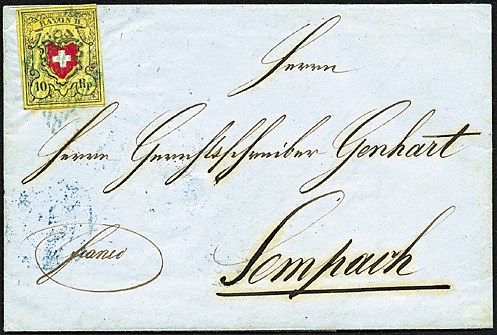 RAYON II
10 Rp
Herrn
Herrn Gerichtschreiber Genhart
franco
Sempach